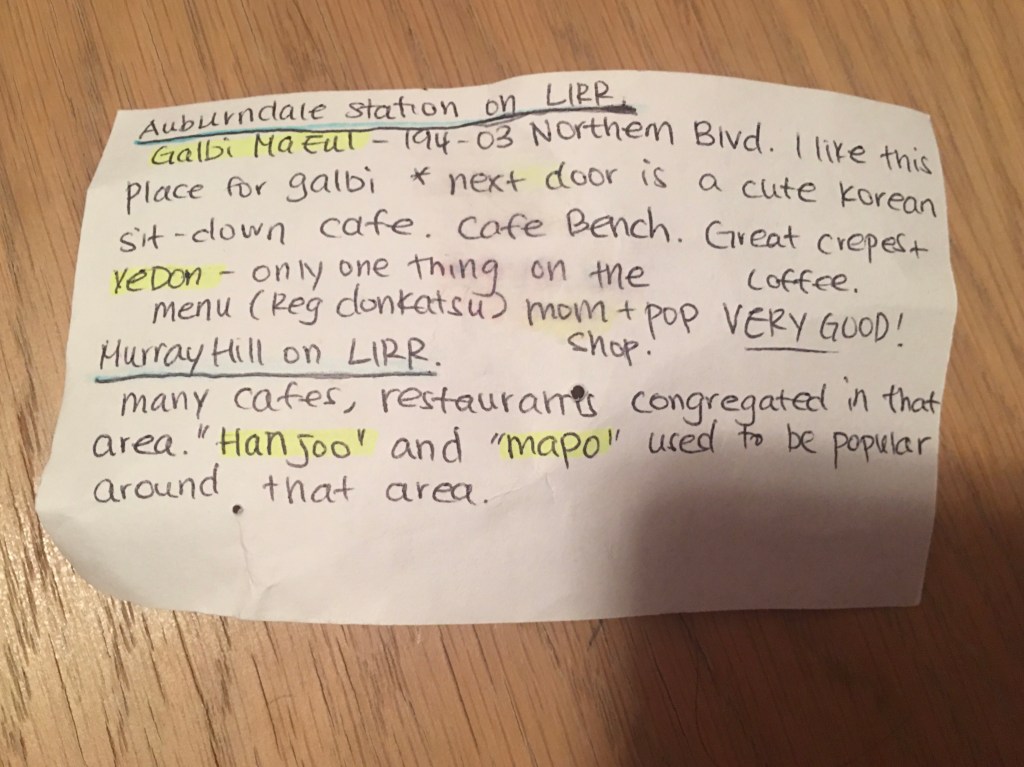 Auburndale station on LIRR.
Galbi Ma Eul - 194-03 Northern Blvd. I like this
place for galbi * next door is a cute Korean
sit-down cafe. Cafe Bench. Great crepes +
coffee.
Yedon - only one thing on the
menu (Reg donkatsu) mom + pop VERY GOOD!
shop.
Murray Hill on LIRR.
many cafes, restaurants congregated in that
area. "Hanjoo" and "mapo" used to be popular
around that area.